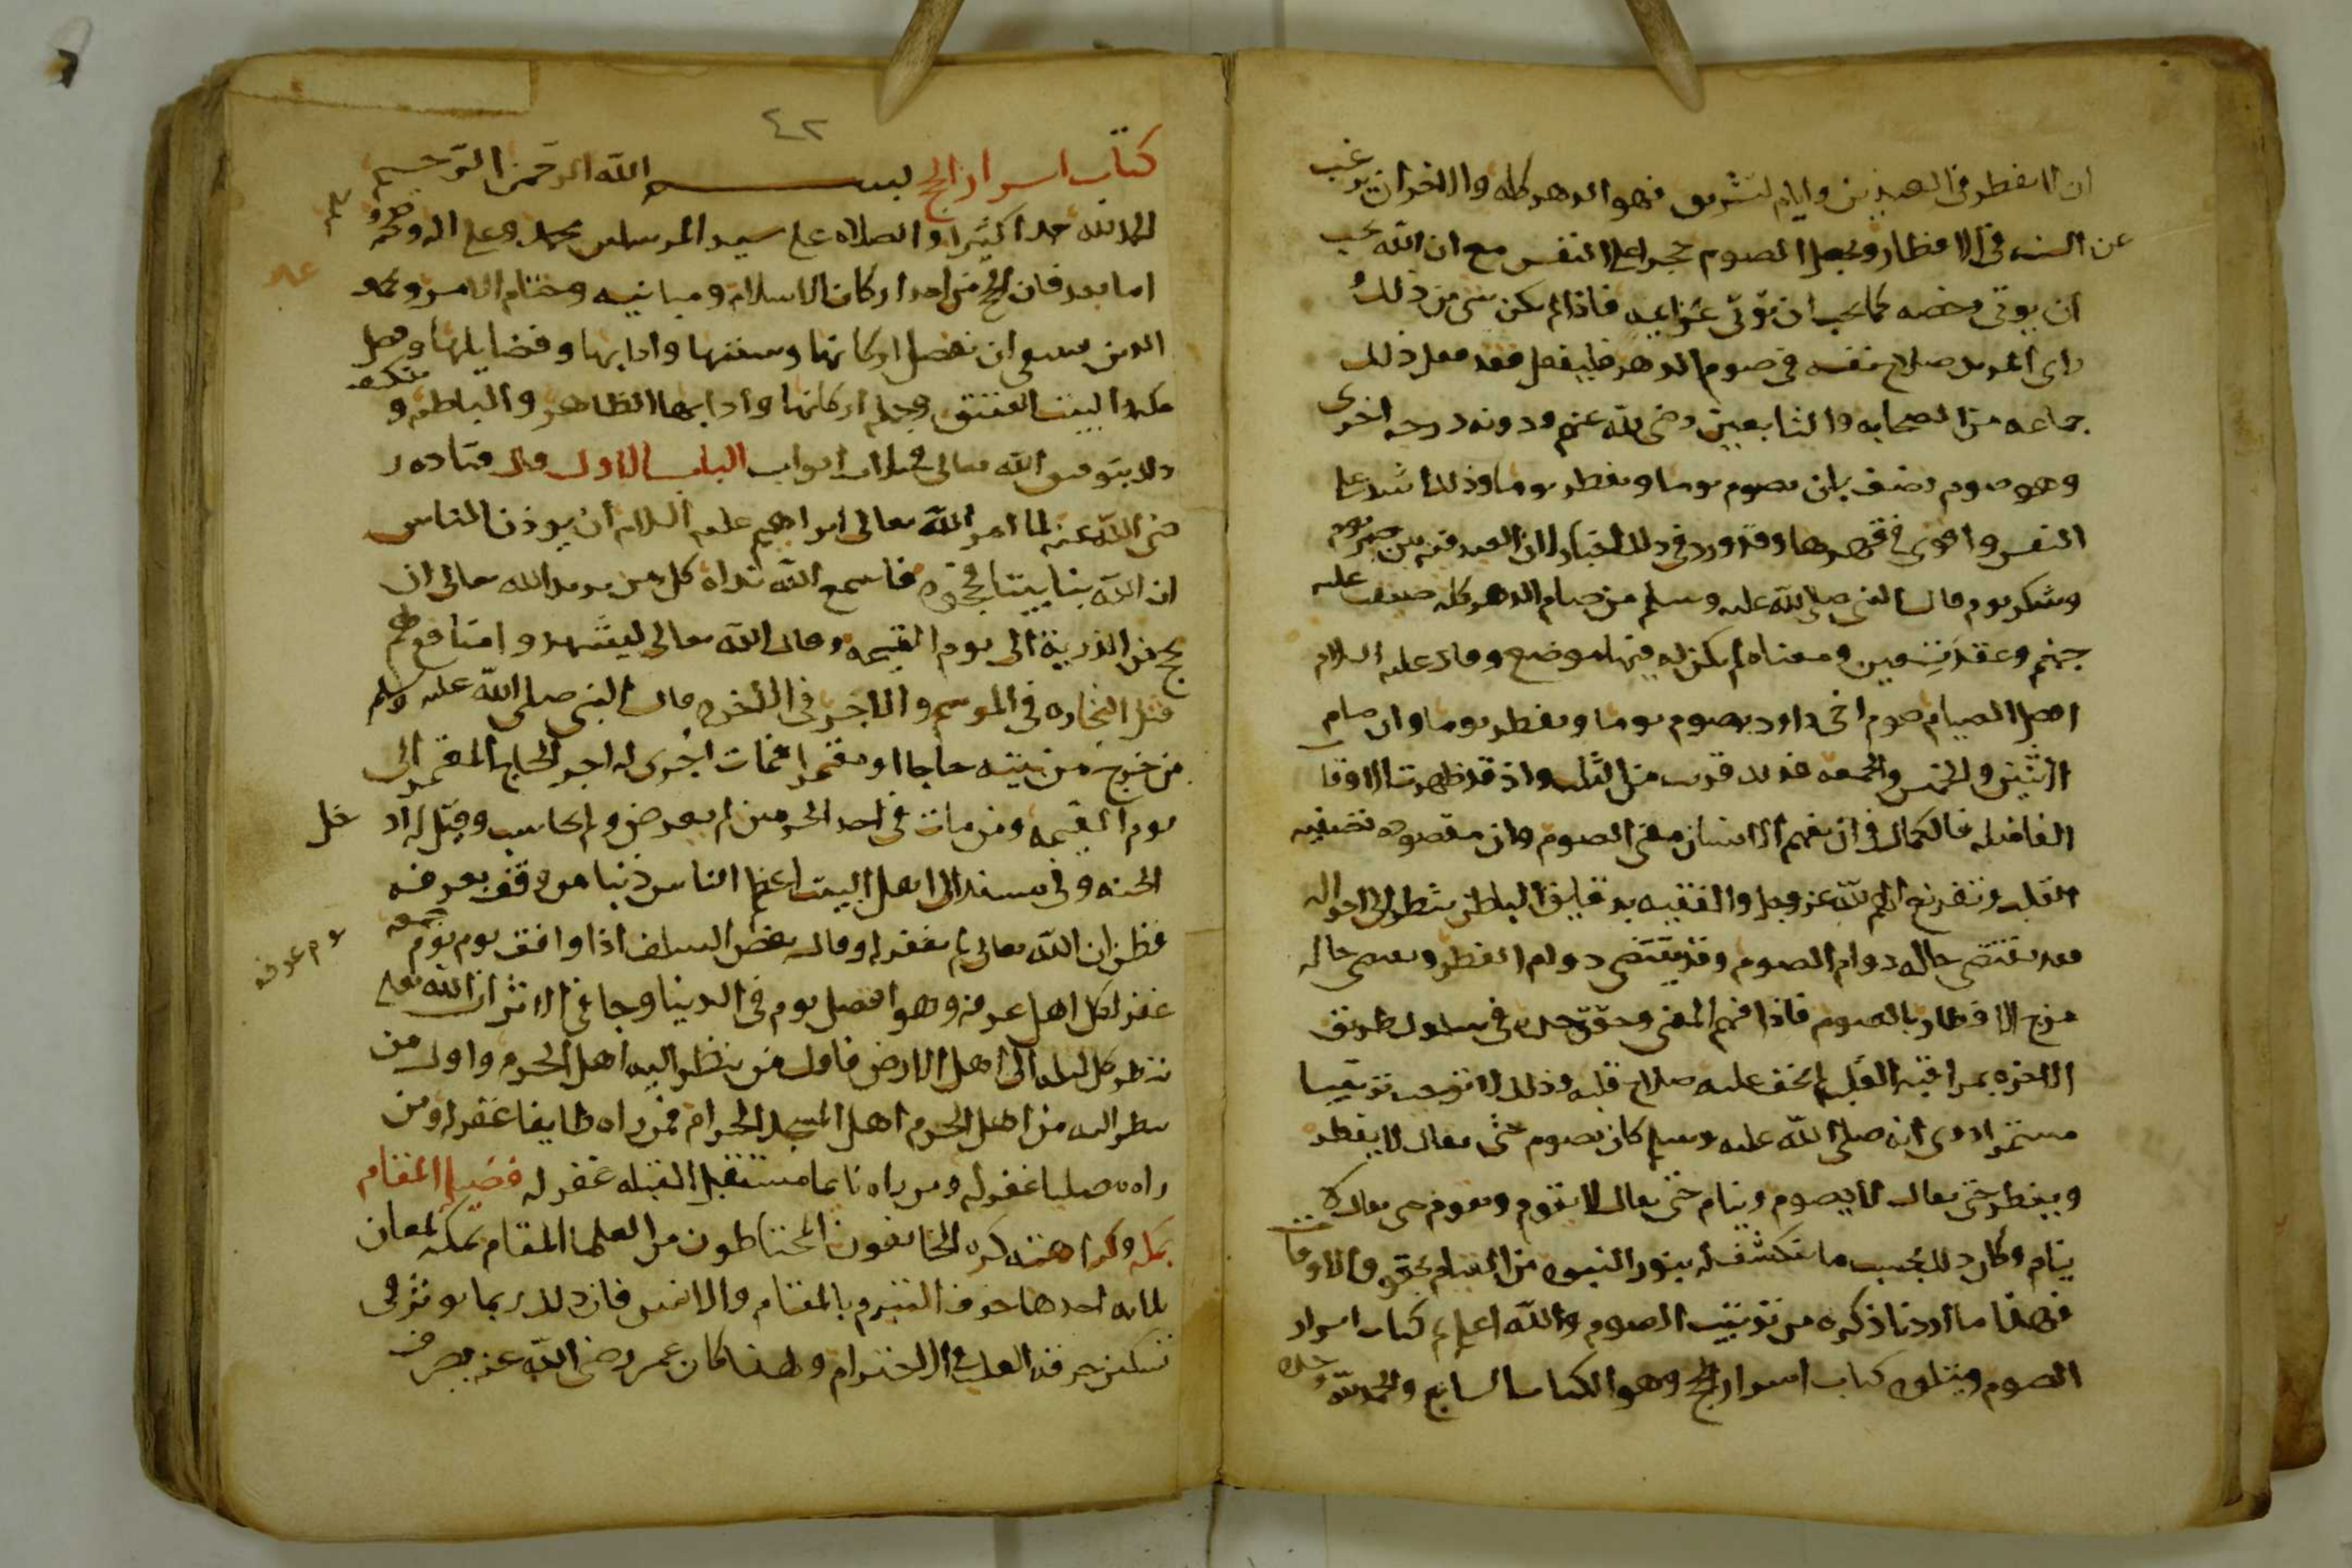 ان لا يفطر في العيدين وايام التشريق فهو الدهر كله والاخر ان يرغب
عن السنه في الافطار ويجعل الصوم حجرا على النفس مع ان الله يحب
ان يوتى رخصه كما يحب ان توتى عزايمه فاذا لم يكن شي من ذلك
راى المريد صلاح نفسه في صوم الدهر فليفعل فقد فعل ذلك
جماعه من الصحابه والتابعين رضي الله عنهم ودونه درجه اخرى
وهو صوم نصف بان يصوم يوما ويفطر يوما وذلك اشد على
النفس واقوى في قهرها وقد ورد في ذلك اخبار لان العبد فيه بين صبر يوم
وشكر يوم قال النبي صلى الله عليه وسلم من صام الدهر كله ضيقت عليه
جهنم وعقد تسعين ومعناه لم يكن له فيها موضع وقال عليه السلام
افضل الصيام صوم اخي داود يصوم يوما ويفطر يوما وان صام
الاثنين والخميس والجمعه فذلك قريب من الثلث واذ قد ظهرت الاوقات
الفاضله فالكمال في ان يفهم الانسان معنى الصوم وان مقصوده تصفيه
القلب وتفريغ الهم لله عز وجل والفقيه بدقايق الباطن ينظر الى احواله
فقد يقتضي حاله دوام الصوم وقد يقتضي دوام الفطر وبعضي حاله
مزج الافطار بالصوم فاذا فهم المعنى وحقق حده في سلوك طريق
الاخره بمراقبه القلب لم يخف عليه صلاح قلبه وذلك لا توجب ترتيبا
مستمرا روى انه صلى الله عليه وسلم كان يصوم حتى يقال لا يفطر
ويفطر حتى يقال لا يصوم وينام حتى يقال لا يقوم ويقوم حتى يقال لا
ينام وكان ذلك بحسب ما ينكشف له بنور النبوه من القيام بحقوق الاوقات
فهذا ما اردنا ذكره من ترتيب الصوم والله اعلم تم كتاب اسرار
الصوم ويتلوه كتاب اسرار الحج وهو الكتاب السابع والحمد لله وحده
٤٢
كتاب اسرار الحج بسم الله الرحمن الرحيم
الحمد لله حمدا كثيرا والصلاه على سيد المرسلين محمد وعلى اله وصحبه
اما بعد فان الحج من احد اركان الاسلام ومبانيه وختام الامر وتمام
الدين ينبغي ان نفصل اركانها وسننها وادابها وفضايلها وفضل
مكه والبيت العتيق وجمله اركانها وادابها الظاهره والباطنه وينكشف
ذلك بتوفيق الله تعالى في ثلاث ابواب الباب الاول قال قتاده ر
ضي الله عنه لما امر الله تعالى ابراهيم عليه السلام ان يوذن الناس
ان الله بنا بيتا فحجوه فاسمع الله نداه كل من يريد الله تعالى ان
يحج من الذرية الى يوم القيمه وقال الله تعالى ليشهدوا منافع لهم
قيل التجاره في الموسم والاجر في الاخره قال النبي صلى الله عليه وسلم
من خرج من بيته حاجا او معتمرا فمات اجرى له اجر الحاج المعتمر الى
يوم القيمه ومن مات في احد الحرمين لم يعرض ولم يحاسب وقيل له اد
خل
الجنه وفي مسند الى اهل البيت اعظم الناس ذنبا من وقف بعرفه
فظن ان الله تعالى لم يغفر له وقال بعض السلف اذا وافق يوم يوم جمعه
يوم عرفه
غفر لكل اهل عرفه وهو افضل يوم في الدنيا وجا في الاثر ان الله تعالى
ينظر كل ليله الى اهل الارض فاول من ينظر اليه اهل الحرم واول من
ينظر اليه من اهل الحرم اهل المسجد الحرام فمن راه طايفا غفر له ومن
راه مصليا غفر له ومن راه نايما مستقبل القبله غفر له فضيله المقام
بمكه وكراهته كره الخايفون المحتاطون من العلما المقام بمكه لمعان
ثلاثه احدها خوف التبرم بالمقام والانس فان ذلك ربما يوثر في
تسكين حرقه القلب في الاحترام ولهذا كان عمر رضي الله عنه يضرب